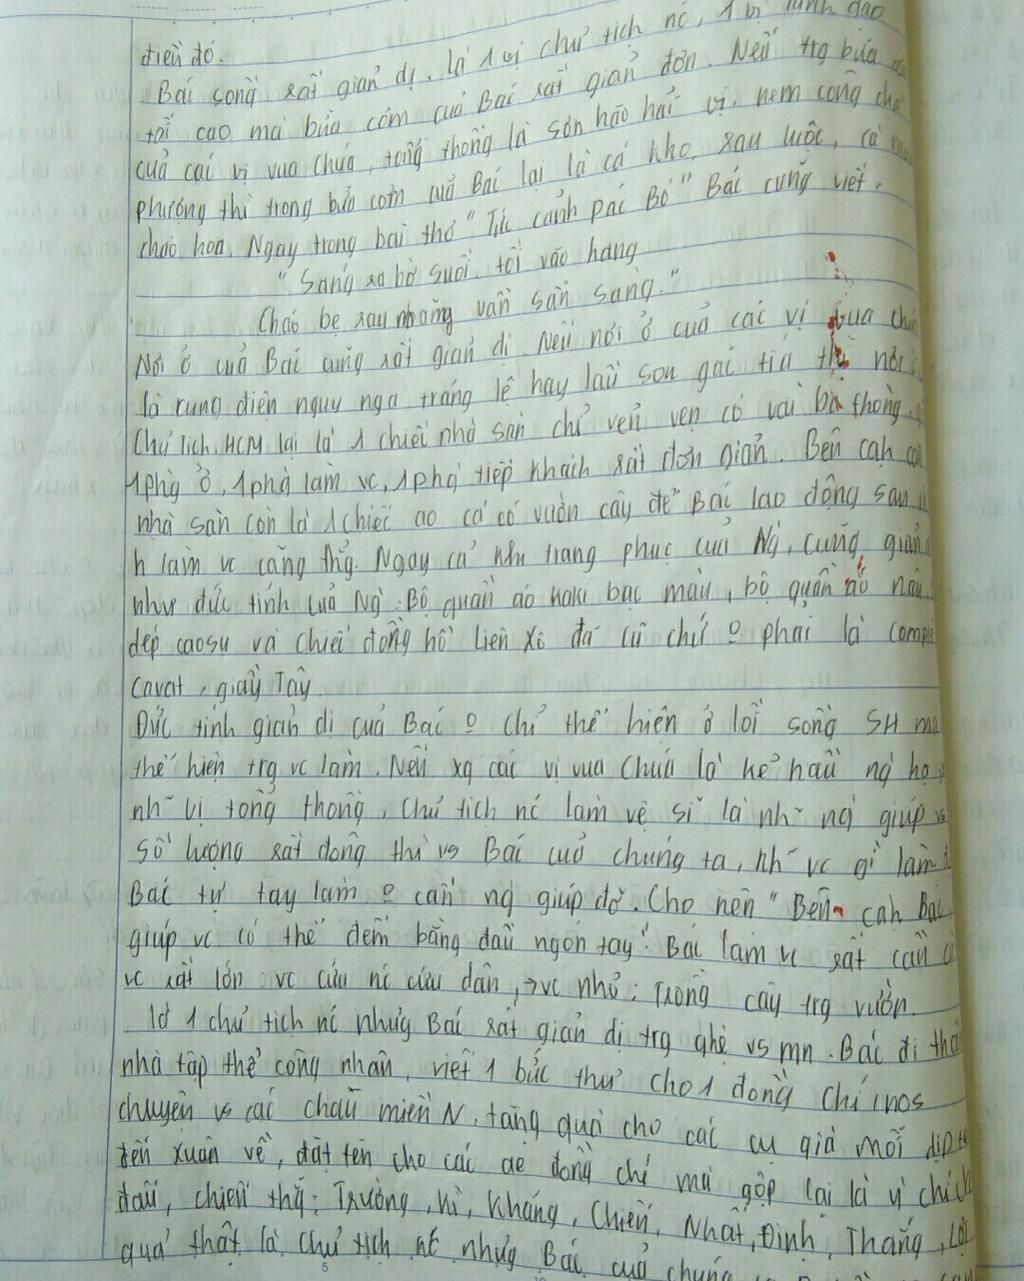 điều đó.
Bác sống rất giản dị. Là 1 vị chủ tịch nc, 1 vị lãnh đạo
tối cao mà bữa cơm của Bác rất giản đơn. Nếu trg bữa
của các vị vua chúa, tổng thống là sơn hào hải vị, nem công chả
phượng thì trong bữa cơm của Bác lại là cá kho, rau luộc, cà
cháo hoa. Ngay trong bài thơ "Tức cảnh Pác Bó" Bác cũng viết.
"Sáng ra bờ suối, tối vào hang
Cháo bẹ rau măng vẫn sẵn sàng."
Nơi ở của Bác cũng rất giản dị. Nếu nơi ở của các vị vua chúa
là cung điện nguy nga, tráng lệ hay lầu son gác tía thì nơi
Chủ tịch HCM lại là 1 chiếc nhà sàn chỉ vẻn vẹn có vài ba thông
1phg ở, 1phg làm vc, 1phg tiếp khách rất đơn giản. Bên cạh
nhà sàn còn là 1 chiếc ao cá có vườn cây để Bác lao động sau
h làm vc căng thg. Ngay cả như trang phục của Ng, cũng giản
như đức tính của Ng: Bộ quần áo kaki bạc màu, bộ quần áo nâu
dép caosu và chiếc đồng hồ Liên Xô đã cũ chứ o phải là comple
cavat, giầy Tây.
Đức tính giản dị của Bác o chỉ thể hiện ở lối sống SH mà
thể hiện trg vc làm. Nếu xq các vị vua chúa là kẻ hầu ng hạ
nh~ vị tổng thống, chủ tịch nc làm vệ sĩ là nh~ ng giúp vc
số lượng rất đông thì vs Bác của chúng ta, nh~ vc gì làm đ
Bác tự tay làm o cần ng giúp đỡ. Cho nên "Bên cạh Bác
giúp vc có thể đếm bằng đầu ngón tay". Bác làm vc rất cần
vc rất lớn vc cứu nc cứu dân, → vc nhỏ: Trồng cây trg vườn.
Là 1 chủ tịch nc nhưg Bác rất giản dị trg qhệ vs mn. Bác đi thăm
nhà tập thể công nhân, viết 1 bức thư cho 1 đồng chí, nos
chuyện vs các cháu miền N, tặng quà cho các cụ già mỗi dịp
đến xuân về, đặt tên cho các ae đồng chí mà gộp lại là ý chí
đấu, chiến thg: Trường, Kì, Kháng, Chiến, Nhất, Định, Thắng, Lợi
quả thật là chủ tịch nc nhưg Bác của chúng